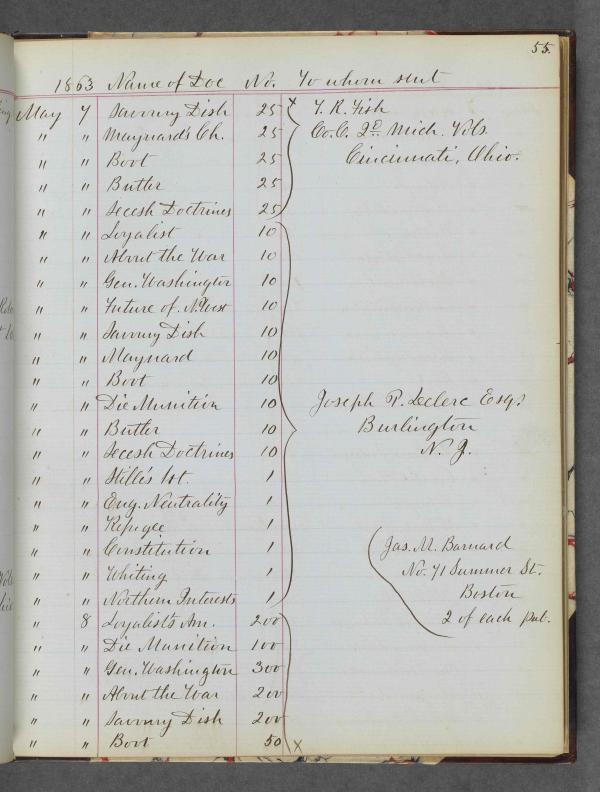 55.
1863 Name of Doc No. To whom sent
May 7 Savoury Dish 25 T. R. Fish
" " Maynard's Ch. 25 Co. C. 2D Mich. Vols.
" " Boot 25 Cincinnati, Ohio.
" " Butler 25
" " Secesh Doctrines 25
" " Loyalist 10
" " About the War 10
" " Gen. Washington 10
" " Future of N. West 10
" " Savoury Dish 10
" " Maynard 10
" " Boot 10
" " Die Munition 10 Joseph P. Leclerc Esq.
" " Butler 10 Burlington
" " Secesh Doctrines 10 N. J.
" " Stillé's 1st. 1
" " Eng. Neutrality 1
" " Refugee 1
" " Constitution 1 Jas. M. Barnard
" " Whiting 1 No. 71 Summer St.
" " Northern Interests 1 Boston
" 8 Loyalists Am. 200 2 of each pub.
" " Die Munition 100
" " Gen. Washington 300
" " About the War 200
" " Savoury Dish 200
" " Boot 50 X